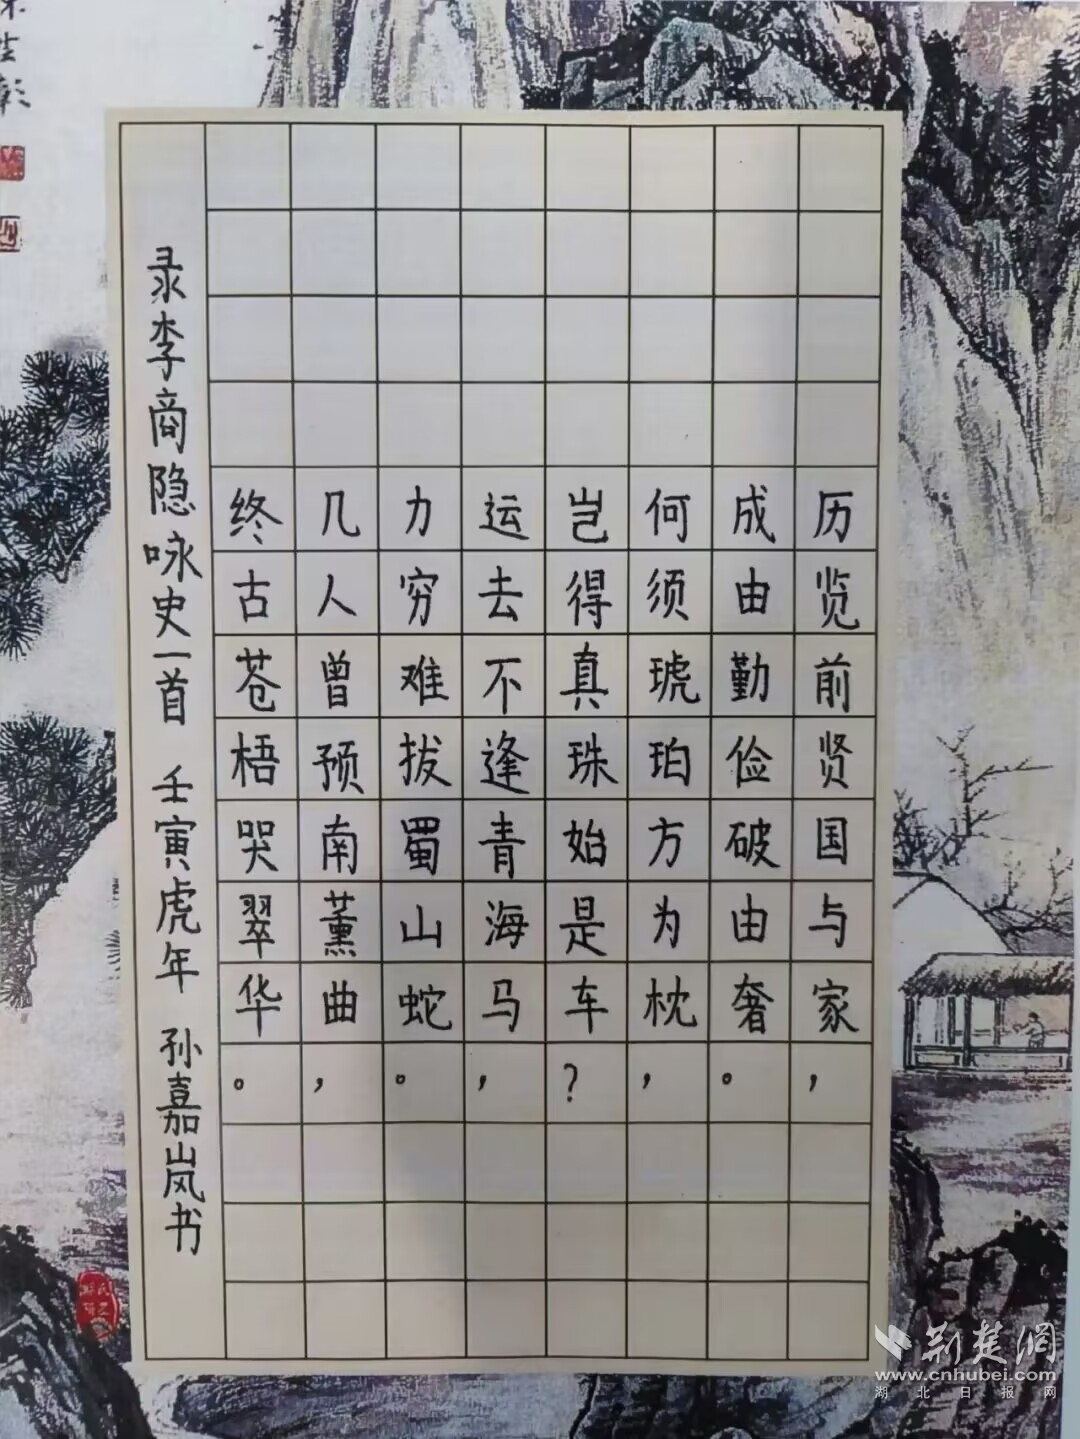 历览前贤国与家，
成由勤俭破由奢。
何须琥珀方为枕，
岂得真珠始是车？
运去不逢青海马，
力穷难拔蜀山蛇。
几人曾预南薰曲，
终古苍梧哭翠华。
录李商隐咏史一首 壬寅虎年 孙嘉岚书
荆楚网
www.cnhubei.com
湖北日报网